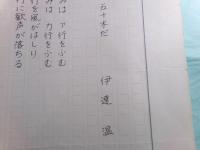 五十本だ
伊達 温
みは ア行をふむ
みは カ行をふむ
行を風がはしり
行に歓声が落ちる